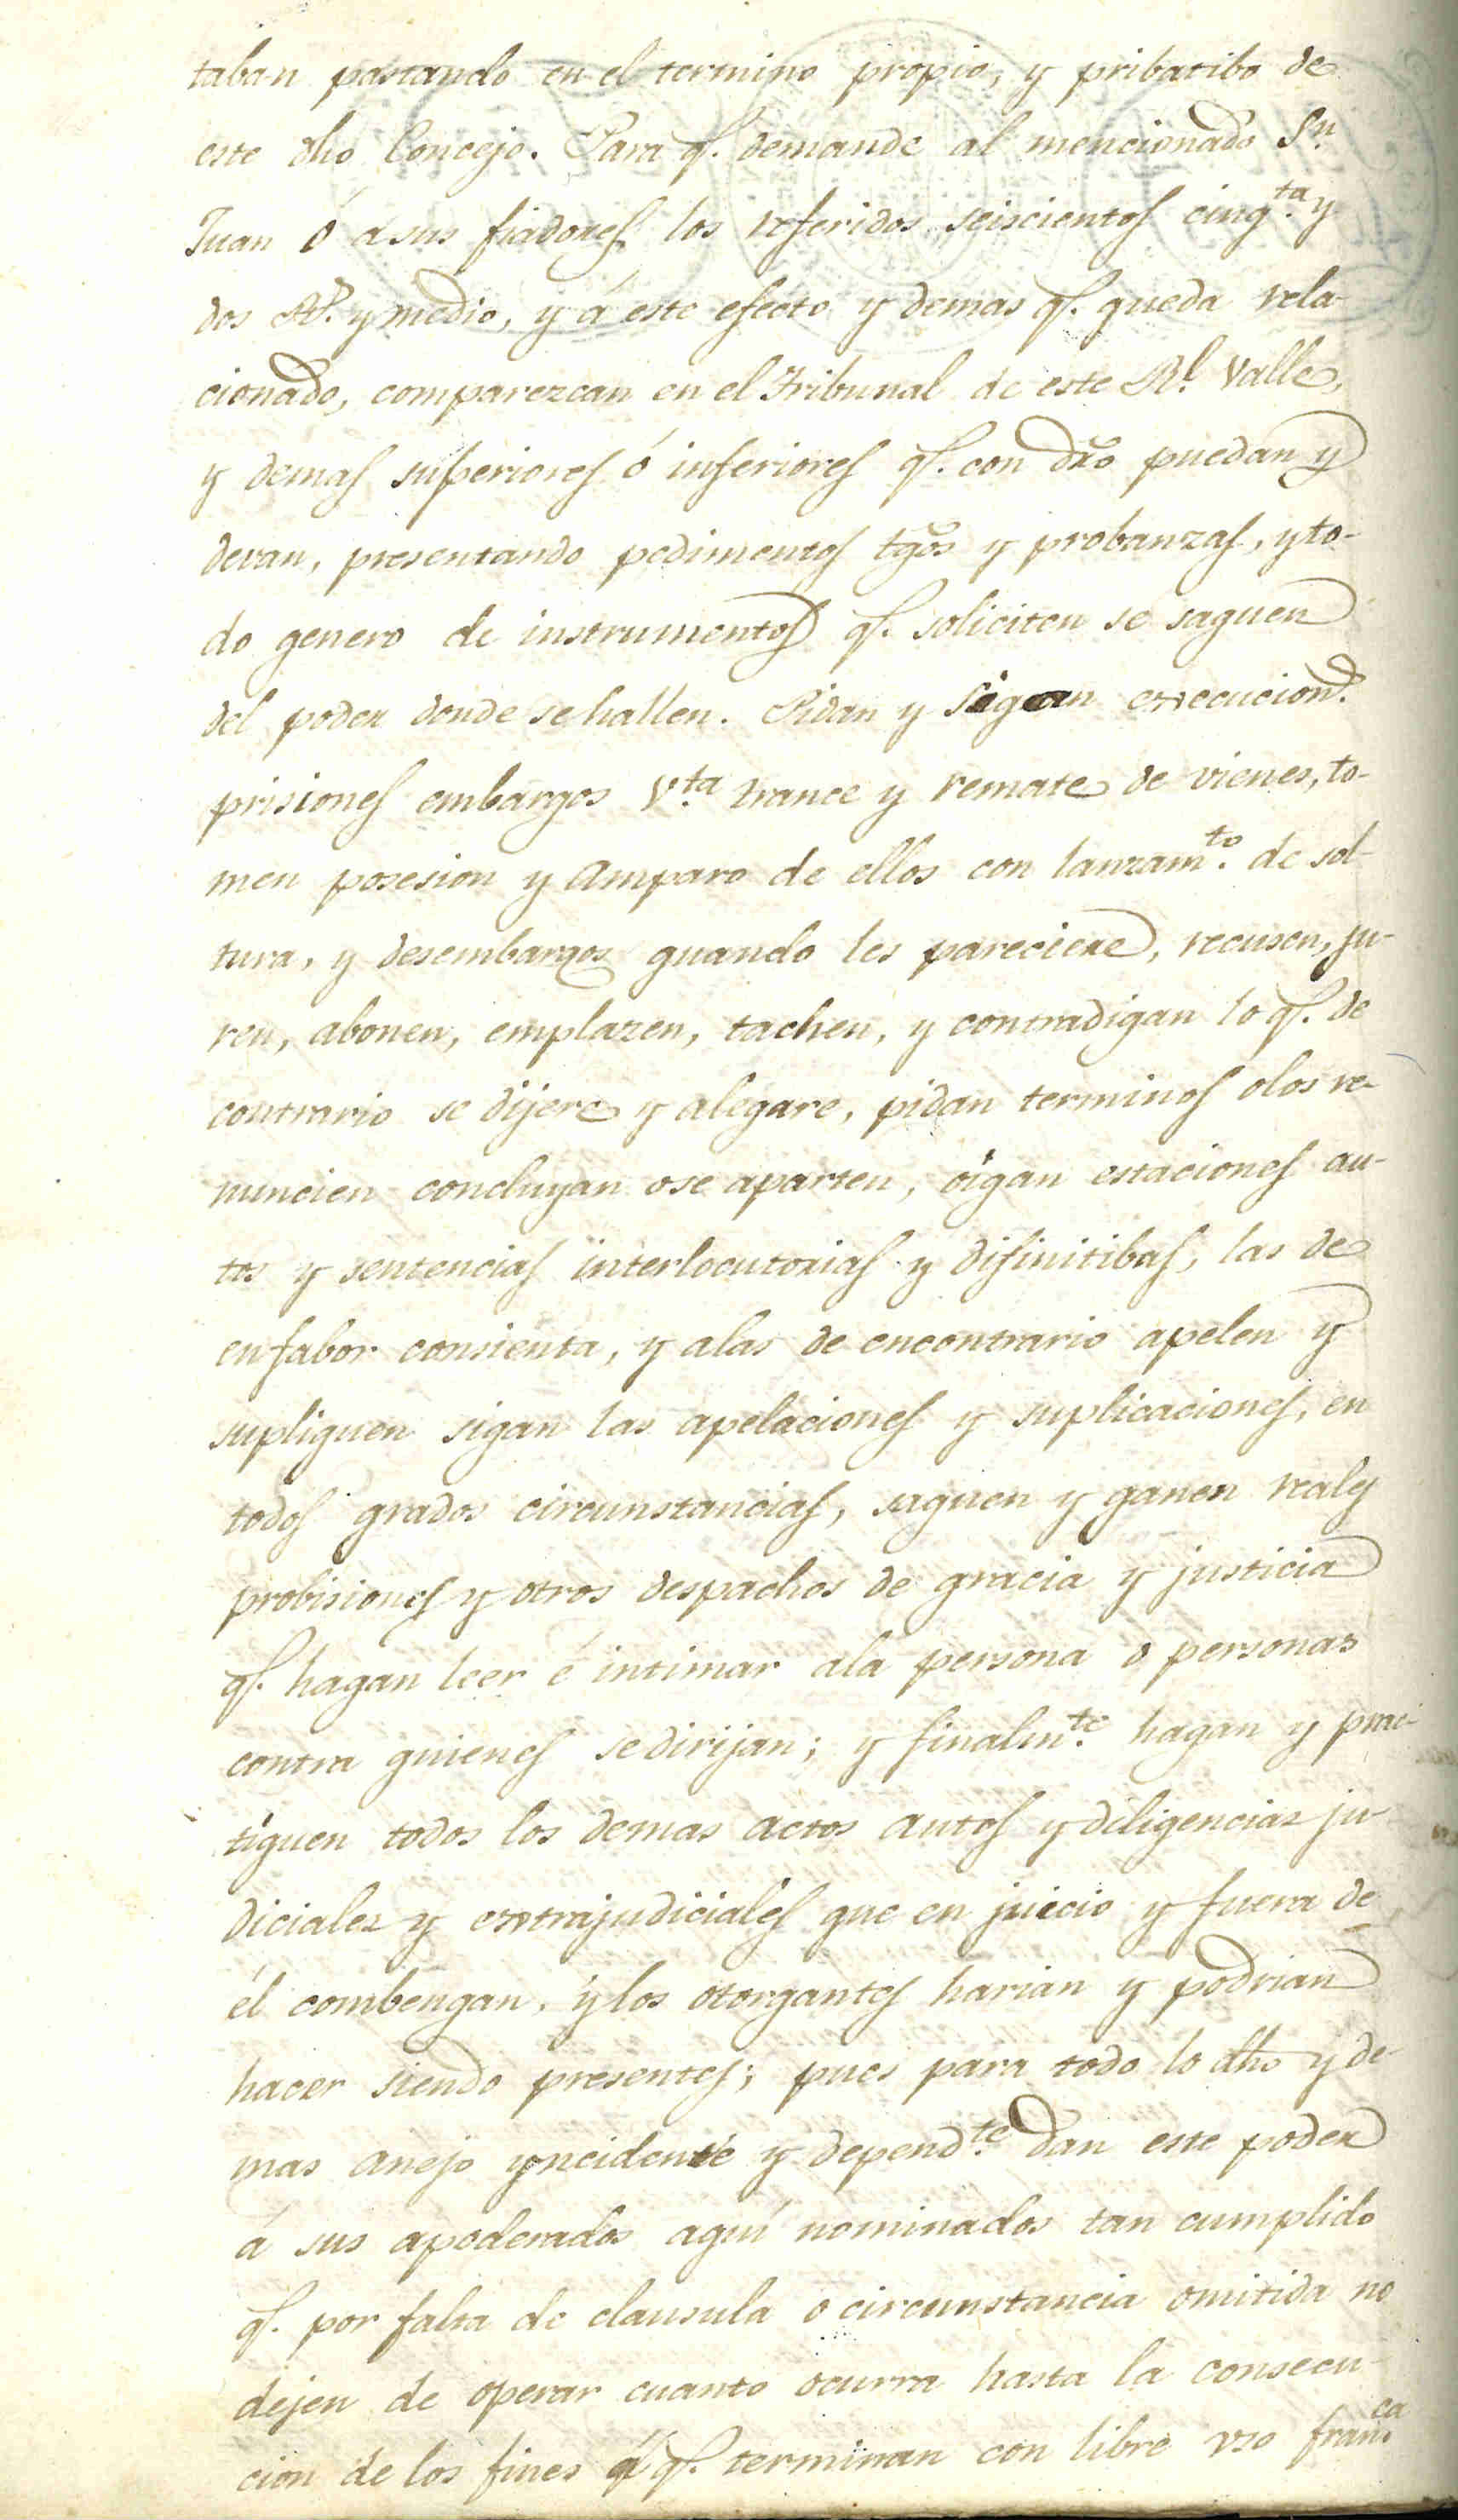 taban pastando en el termino propio, y pribatibo de
este dho Concejo. Para q.e demande al mencionado Sn.
Juan ó á sus fiadores los referidos seiscientos cinq.ta y
dos R.s y medio, y á este efecto y demas q.e queda rela-
cionado, comparezcan en el Tribunal de este R.l Valle,
y demas superiores ó inferiores q.e con dro puedan y
devan, presentando pedimentos tgos y probanzas, y to-
do genero de instrumentos q.e soliciten se saquen
del poder donde se hallen. Pidan y sigan execucion.s
prisiones embargos v.ta trance y remate de vienes, to-
men posesion y amparo de ellos con lanzam.to de sol-
tura, y desembargos quando les pareciere, recusen, ju-
ren, abonen, emplazen, tachen, y contradigan lo q.e de
contrario se dijere y alegare, pidan terminos o los re-
nuncien concluyan o se aparten, oigan estaciones au-
tos y sentencias interlocutorias y difinitibas, las de
en fabor consienta, y a las de encontrario apelen y
supliquen sigan las apelaciones y suplicaciones, en
todos grados circunstancias, saquen y ganen reales
probisiones y otros despachos de gracia y justicia
q.e hagan leer é intimar a la persona o personas
contra quienes se dirijan; y finalm.te hagan y prac-
tiquen todos los demas actos autos y diligencias ju-
diciales y extrajudiciales que en juicio y fuera de
él combengan, y los otorgantes harian y podrian
hacer siendo presentes; pues para todo lo dho y de-
mas anejo yncidente y depend.te dan este poder
á sus apoderados aqui nominados tan cumplido
q.e por falta de clausula o circunstancia omitida no
dejen de operar cuanto ocurra hasta la consecu-
cion de los fines á q.e terminan con libre vso fran.ca